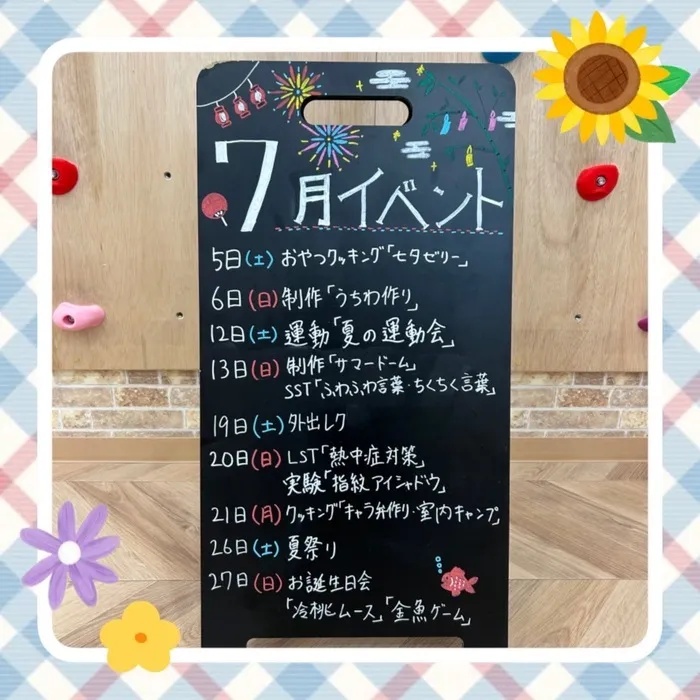 7月イベント
5日(土) おやつクッキング「七夕ゼリー」
6日(日) 制作「うちわ作り」
12日(土) 運動「夏の運動会」
13日(日) 制作「サマードーム」
SST「ふわふわ言葉・ちくちく言葉」
19日(土) 外出レク
20日(日) LST「熱中症対策」
実験「指紋アイシャドウ」
21日(月) クッキング「キャラ弁作り・室内キャンプ」
26日(土) 夏祭り
27日(日) お誕生日会
「冷桃ムース」「金魚ゲーム」